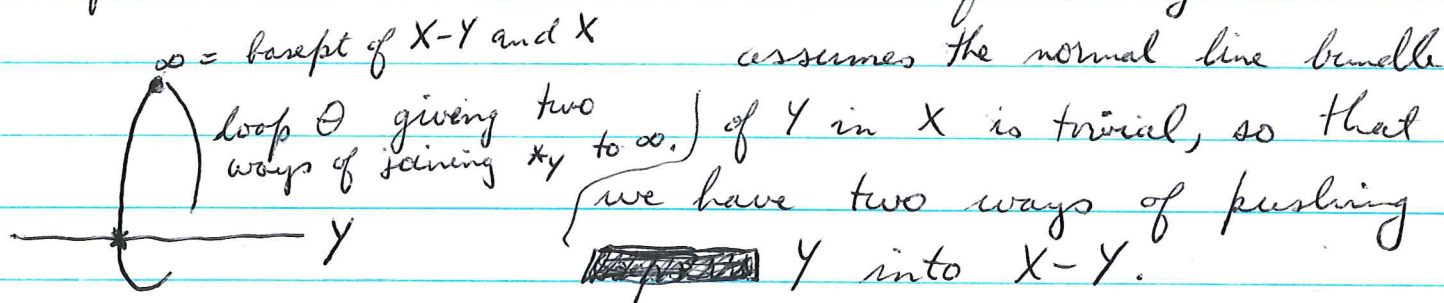 ∞ = basept of X-Y and X
loop θ giving two
ways of joining *y to ∞.
Y
assumes the normal line bundle
of Y in X is trivial, so that
we have two ways of pushing
Y into X-Y.